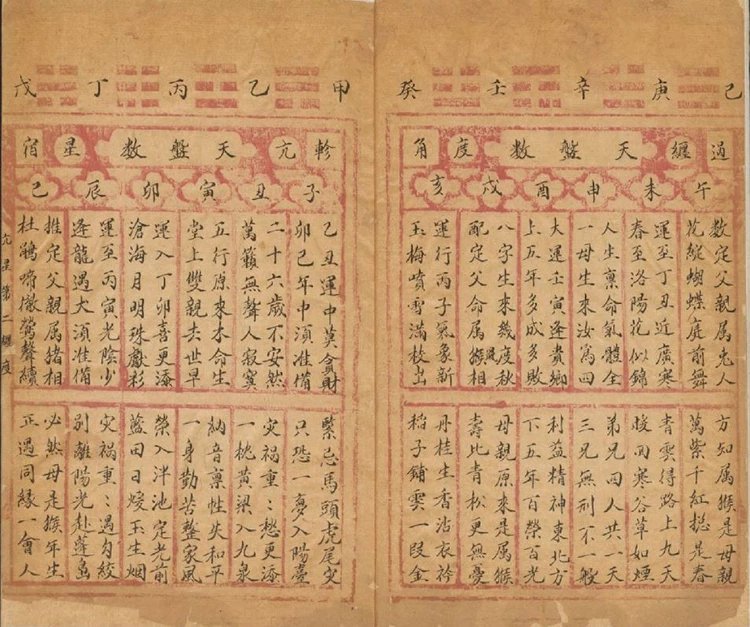 己 庚 辛 壬 癸
過 纏 天 盤 數 度 角
午 未 申 酉 戌 亥
數定父親属兎人
花綻蝴蝶庭前舞
運至丁丑近廣寒
春至洛陽花似錦
人生禀命氣體全
一母生來汝為四
大運壬寅逢貴鄉
上五年多成多敗
八字生來幾度秋
風
配定父命属猴相
運行丙子氣象新
玉梅噴雪滿枝出
方知属猴是母親
萬紫千紅揔是春
青雲得路上九天
暖回寒谷草如煙
弟兄四人共一天
三兄無刑不一般
利益精神東北方
下五年百榮百光
母親原來是属猴
壽比青松更無憂
丹桂生香沾衣衿
稻子鋪雲一段金
甲 乙 丙 丁 戊
軫 亢 天 盤 數 星 宿
子 丑 寅 卯 辰 巳
乙丑運中莫貪財
卯巳年中湏准備
二十六歲不安然
萬籟無聲人寂寞
五行原來木命生
堂上雙親去世早
運入丁卯喜更添
滄海月明珠獻彩
運至丙寅光陰少
逢龍遇犬湏准備
推定父親属猪相
杜鵑啼徹鶯聲續
緊忌馬頭虎尾灾
只恐一夢入陽臺
灾禍重:愁更添
一桃黃梁入九泉
納音禀性失和平
一身勤苦整家風
榮入泮池定光前
藍田日煖玉生烟
灾禍重:遇勾絞
別離陽光赴蓬島
必然母是猴年生
正遇同緣一會人
亢星第二纏度